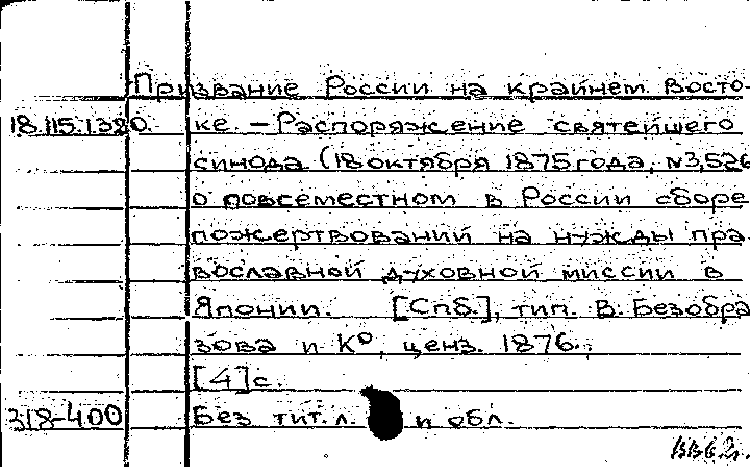 Призвание России на крайнем Восто-
18.115.1.380. ке. – Распоряжение святейшего
синода (18 октября 1875 года, № 3,526
о повсеместном в России сборе
пожертвований на нужды пра-
вославной духовной миссии в
Японии. [Спб.], тип. В. Безобра
зова и К⁰, ценз. 1876.,
[4] с.
318-400 Без тит. л. и обл.